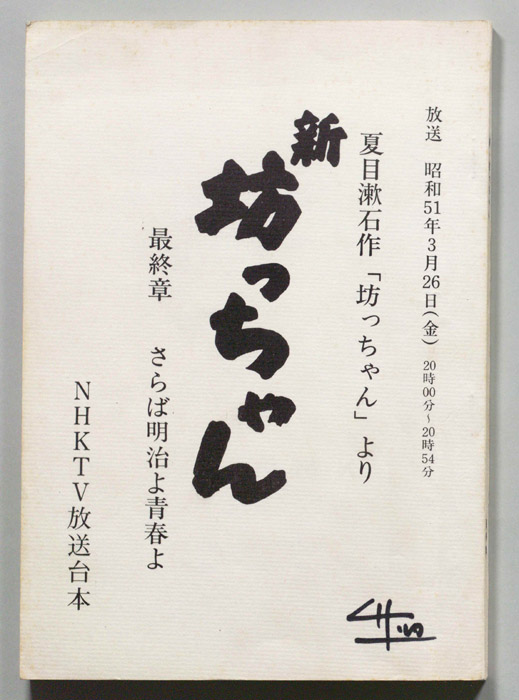 放送 昭和51年3月26日(金) 20時00分~20時54分
夏目漱石作「坊っちゃん」より
新坊っちゃん
最終章 さらば明治よ青春よ
NHKTV放送台本